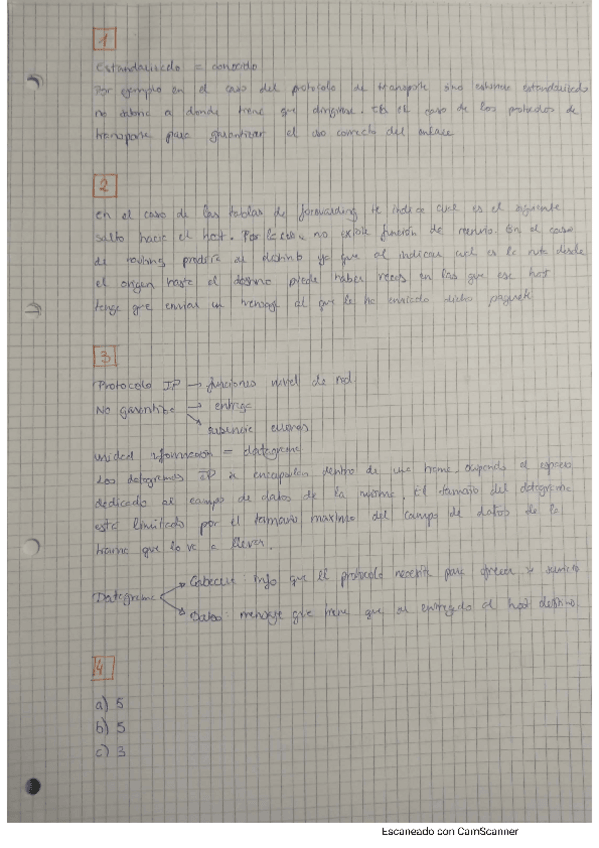 1
Estandarizado = conocido
Por ejemplo en el caso del protocolo de transporte sino estuviese estandarizado
no sabría a donde tiene que dirigirse. En el caso de los protocolos de
transporte para garantizar el uso correcto del enlace
2
En el caso de las tablas de forwarding te indica cual es el siguiente
salto hacia el host. Por lo no existe función de En el caso
de routing al destino ya que al indicar cual es la ruta desde
el origen hasta el destino puede haber veces en las que ese host
tenga que enviar un mensaje al que le ha enviado dicho paquete
3
Protocolo IP → funciones nivel de red
No garantiza → entrega
→ ausencia errores
unidad información = datagrama
Los datagramas IP se encapsulan dentro de una trama, ocupando el espacio
dedicado al campo de datos de la misma. El tamaño del datagrama
está limitado por el tamaño maximo del campo de datos de la
trama que lo va a llevar.
Datagrama → Cabecera info que el protocolo necesita para ofrecer su servicio
→ Datos mensaje que tiene que ser entregado al host destino
4
a) 5
b) 5
c) 3
Escaneado con CamScanner